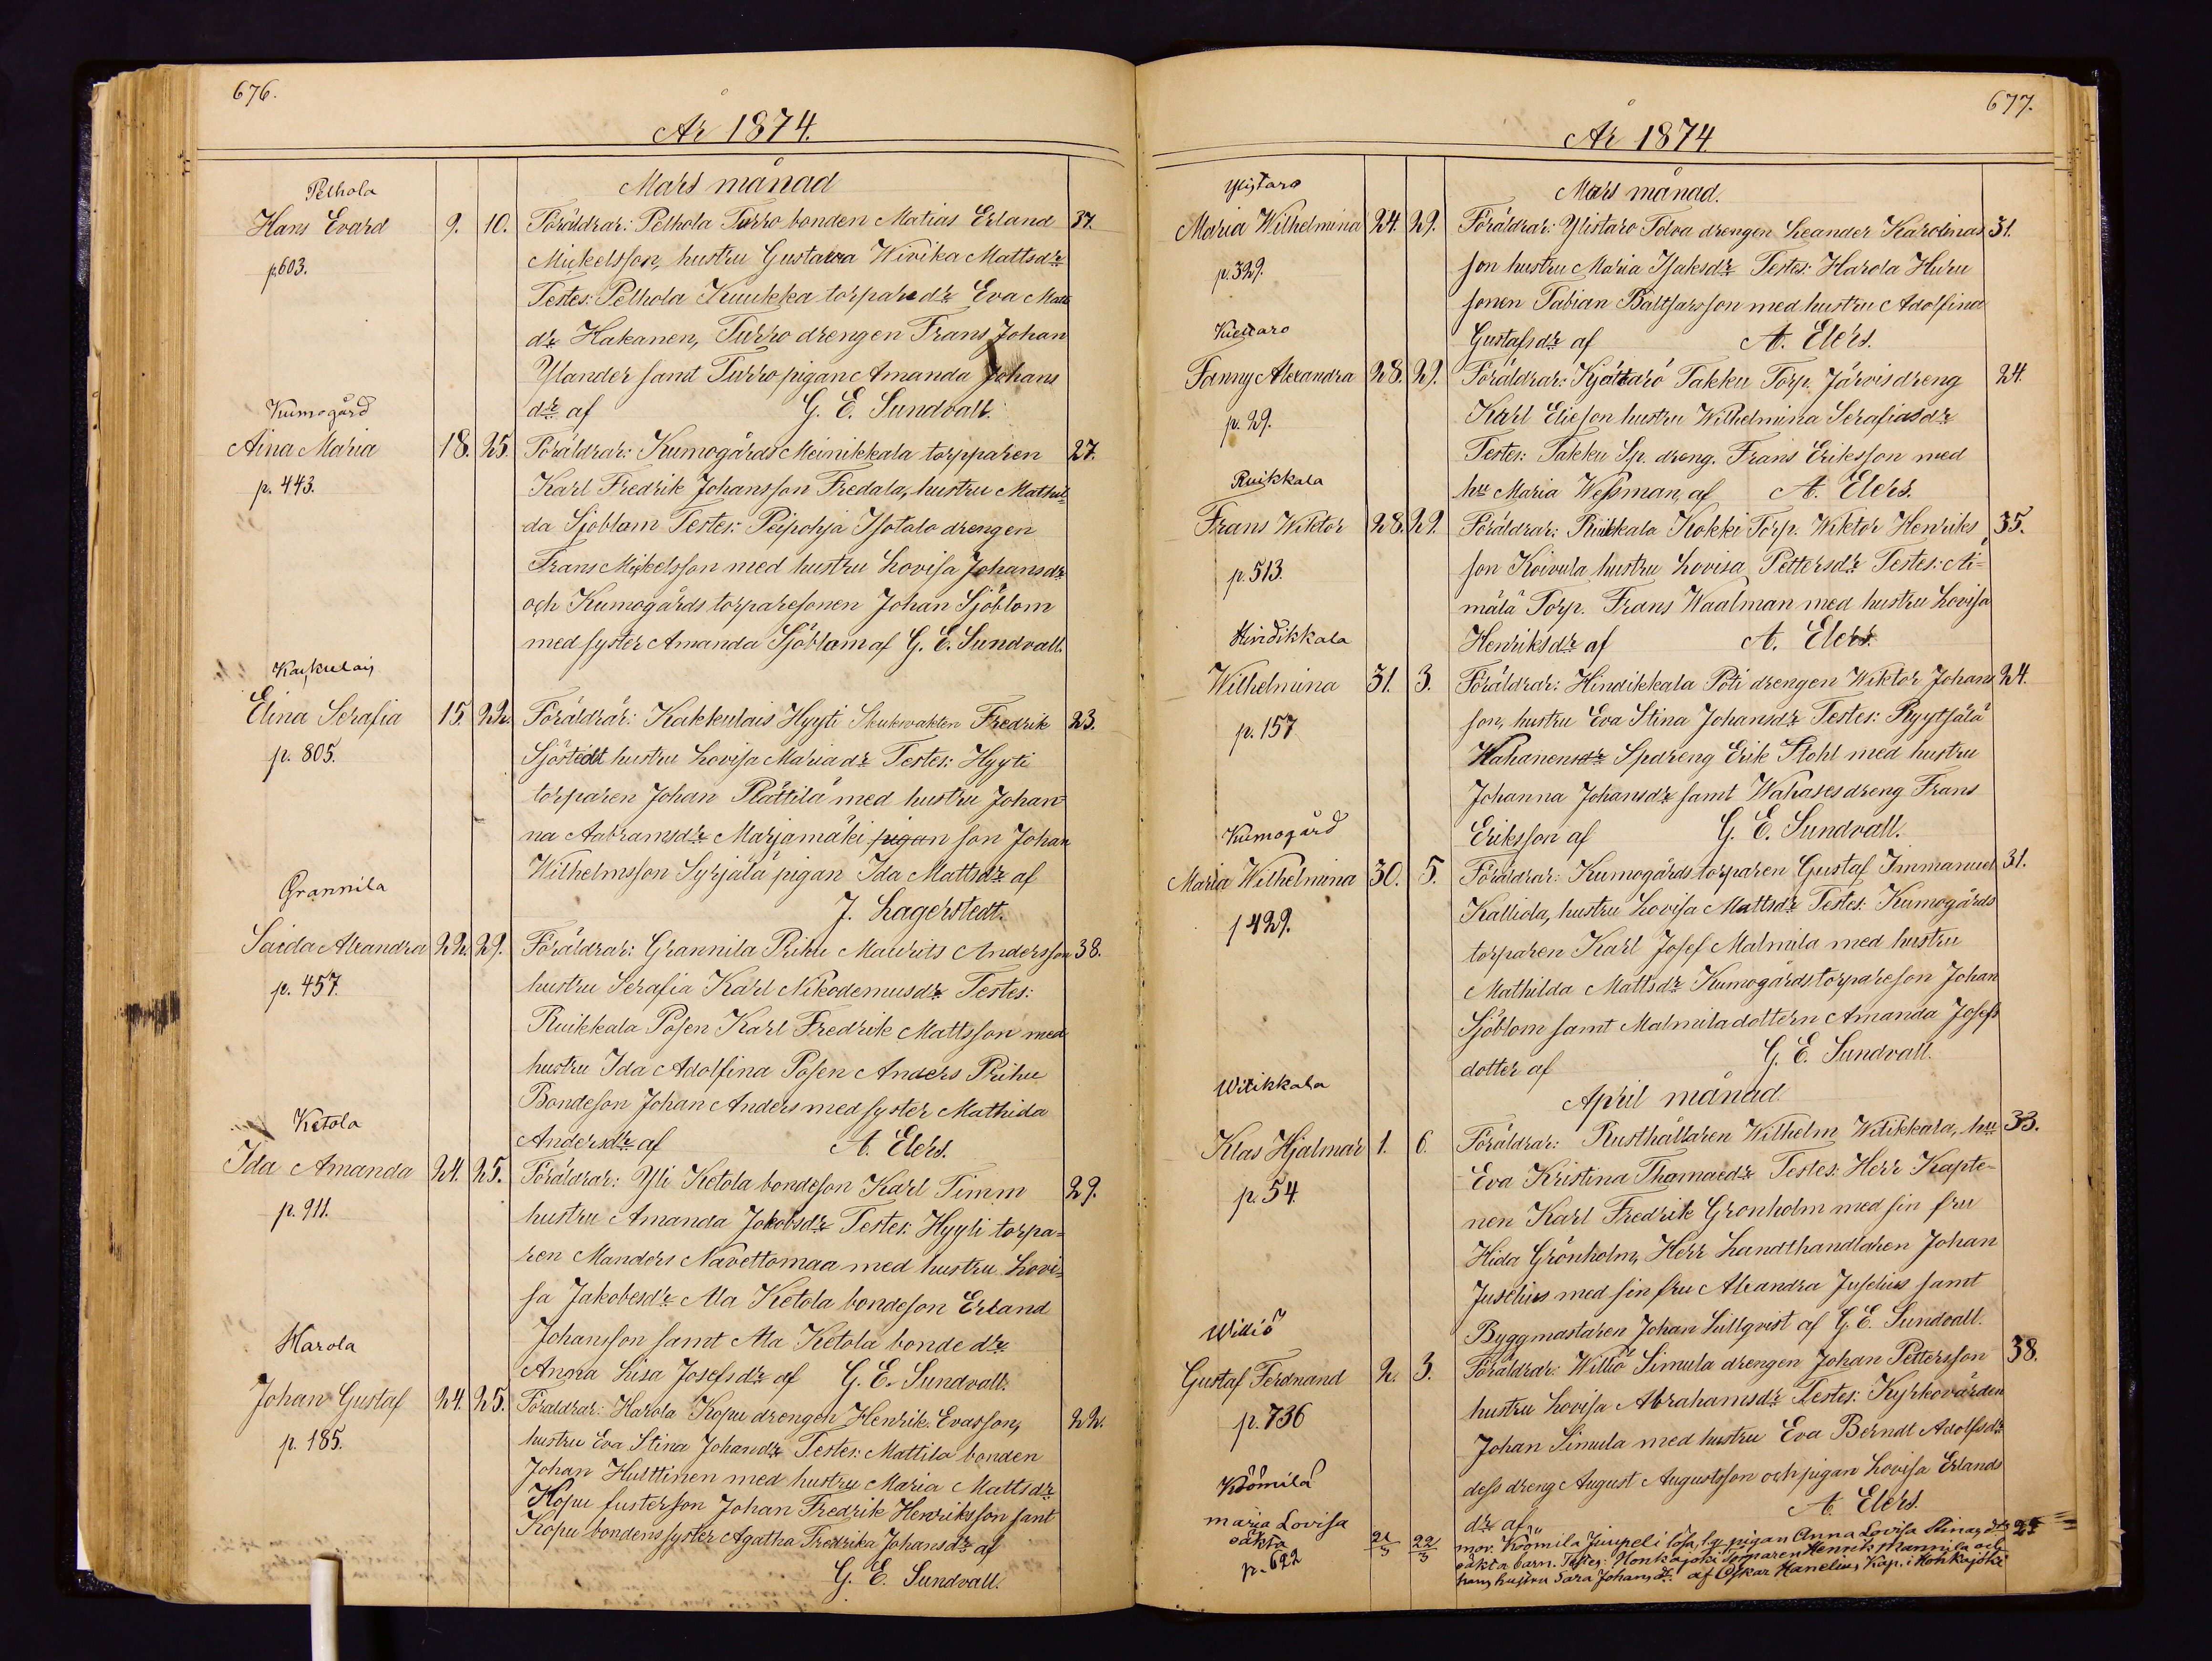 676.
År 1874.
Mars månad
Pelhola
Hans Evard 9. 10. Föräldrar: Pelhola Turro bonden Matias Erland 37.
p. 603. Mickelsson, hustru Gustava Wivika Mattsdr
Testes: Pelhola Kuukka torparedr Eva Matts
dr Hakanen, Turro drengen Frans Johan
Ylander samt Turro pigan Amanda Johans
dr af G. E. Sundvall.
Kumogård
Aina Maria 18. 25. Föräldrar: Kumogårds Meinikkala torpparen 27.
p. 443. Karl Fredrik Johansson Fredala, hustru Mathil=
da Sjöblom Testes: Peipohja Isotalo drengen
Frans Mickelsson med hustru Lovisa Johansdr
och Kumogårds torparesonen Johan Sjöblom
med syster Amanda Sjöblom af G. E. Sundvall.
Kaukulais
Elina Serafia 15. 22. Föräldrar: Kakkulais Hyyti Skukvakten Fredrik 23.
p. 805. Sjöstedt hustru Lovisa Mariadr Testes: Hyyti
torparen Johan Plättilä med hustru Johan=
na Aabramsdr Marjamäki pigan son Johan
Wilhelmsson Syrjälä pigan Ida Mattsdr af
J. Lagerstedt.
Grannila
Saida Alexandra 22. 29. Föräldrar: Grannila Prihu Maurits Andersson 38.
p. 457. hustru Serafia Karl Nikodemusdr Testes:
Ruikkala Posen Karl Fredrik Mattsson med
hustru Ida Adolfina Posen Anders Prihu
Bondeson Johan Anders med syster Mathida
Andersdr af A. Elers.
Ketola
Ida Amanda 24. 25. Föräldrar: Yli Ketola bondeson Karl Timm 29.
p. 911. hustru Amanda Jakobsdr Testes: Hyyti torpa=
ren Manders Navettomaa med hustru Lovi=
sa Jakobsdr Ala Ketola bondeson Erland
Johansson samt Ala Ketola bonde dr
Anna Lisa Josefsdr af G. E. Sundvall.
Harola
Johan Gustaf 24. 25. Föräldrar: Harola Kopu drengen Henrik Evasson, 22.
p. 185. hustru Eva Stina Johandr Testes: Mattila bonden
Johan Hulttinen med hustru Maria Mattsdr
Kopu susterson Johan Fredrik Henriksson samt
Kopu bondens syster Agatha Fredrika Johansdr af
G. E. Sundvall.
677.
År 1874
Mars månad.
Ylistaro
Maria Wilhelmina 24. 29. Föräldrar: Ylistaro Tolva drengen Leander Karolinas 31.
p. 329. son hustru Maria Isaksdr Testes: Harola Huru
sonen Fabian Baltsarsson med hustru Adolfina
Gustafsdr af A. Elers.
Kiettaro
Fanny Alexandra 28. 29. Föräldrar: Kjättarö Takku Torp. Järvis dreng 24.
p. 29. Karl Elieson hustru Wilhelmina Serafiasdr
Testes: Takku Sp. dreng. Frans Eriksson med
hu Maria Wessman, af A. Elers.
Ruikkala
Frans Wiktor 28. 29. Föräldrar: Ruikkala Kokki Torp. Wiktor Henriks 35.
p. 513. son Koivula hustru Lovisa Pettersdr Testes: Ai=
mälä Torp. Frans Waalman med hustru Lovisa
Henriksdr af A. Elers.
Hindikkala
Wilhelmina 31. 3. Föräldrar: Hindikkala Poti drengen Wiktor Johans 24.
p. 157 son, hustru Eva Stina Johansdr Testes: Ryytsälä
Wahanensdr Spdreng Erik Stohl med hustru
Johanna Johansdr samt Wahases dreng Frans
Eriksson af G. E. Sundvall.
Kumogård
Maria Wilhelmina 30. 5. Föräldrar: Kumogårds torparen Gustaf Immanuel 31.
p 429. Kalliola, hustru Lovisa Mattsdr Testes: Kumogårds
torparen Karl Josef Malmila med hustru
Mathilda Mattsdr Kumogårds torpareson Johan
Sjöblom samt Malmila dottern Amanda Josefs
dotter af G. E. Sundvall.
April månad.
Witikkala
Klas Hjalmar 1. 6. Föräldrar: Rusthållaren Wilhelm Witikkala, hu 33.
p. 54. Eva Kristina Thomaedr Testes: Herr Kapte=
nen Karl Fredrik Grönholm med sin fru
Hida Grönholm, Herr Landthandlaren Johan
Juselius med sin fru Alexandra Juselius samt
Byggmästaren Johan Lillqvist af G. E. Sundvall.
Williö
Gustaf Ferdnand 2. 3. Föräldrar: Williö Simula drengen Johan Pettersson 38.
p. 736 hustru Lovisa Abrahamsdr Testes: Kyrkovärden
Johan Simula med hustru Eva Berndt Adolfsdr
dess dreng August Augustsson och pigan Lovisa Erlands
dr af A. Elers.
Köömilä
Maria Lovisa 21/3 22/3 mor. Köömilä Juupeli lösa, lg. pigan Anna Lovisa Stinasdr 24
oäkta oäkta barn. Testes: Honkajoki Torparen Henrik Mannila och
p. 622 hans hustru Sara Johansdr. af Oskar Hanelius Kap. i Honkajoki